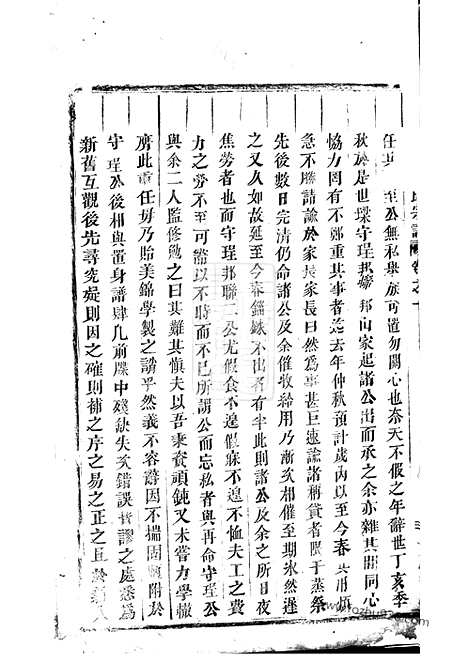 氏宗譜 卷之十
任其 至公無私舉族可置勿關心也奈天不假之年辭世丁亥季
秋於是世璨守珵邦 邦向家起諸公出而承之余亦雜其間同心
協力罔有不鄭重其事者迄去年仲秋預計歲內以至今春共用煩
急不勝請諭於家長家長曰然爲事甚巨速諭諸稱貸者限于蒸祭
先後數日完清仍命諸公及余催收給用乃漸次相催至期氷然遲
之又久如故延至今春錙銖不出者有半此則諸公及余之所日夜
焦勞者也而守珵邦聯二公尤假食不遑假寐不遑不恤夫工之費
力之勞不至可證以不時而不已所謂公而忘私者與再命守珵公
與余二人監修勉之曰其難其慎夫以吾秉資頑鈍又未嘗力學輙
膺此重任毋乃貽美錦學製之誚乎然義不容辭因不揣固陋附於
守珵公後相與置身譜肆几前牒中殘缺失次錯誤訾謬之處悉爲
新舊互觀後先尋究疑則因之確則補之序之易之正之且於 八